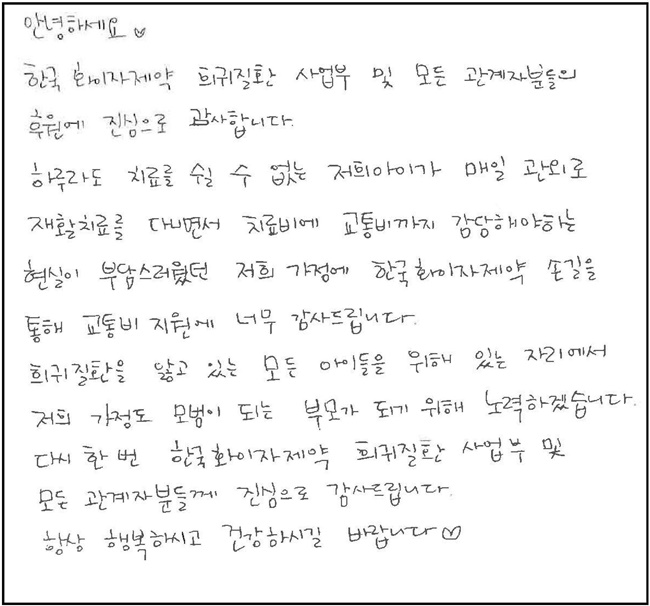 안녕하세요 ♡
한국 화이자제약 희귀질환 사업부 및 모든 관계자분들의
후원에 진심으로 감사합니다.
하루라도 치료를 쉴 수 없는 저희아이가 매일 관외로
재활치료를 다니면서 치료비에 교통비까지 감당해야하는
현실이 부담스러웠던 저희 가정에 한국화이자제약 손길을
통해 교통비 지원에 너무 감사드립니다.
희귀질환을 앓고 있는 모든 아이들을 위해 있는 자리에서
저희 가정도 모범이 되는 부모가 되기 위해 노력하겠습니다.
다시 한 번 한국화이자제약 희귀질환 사업부 및
모든 관계자분들께 진심으로 감사드립니다.
항상 행복하시고 건강하시길 바랍니다 ♡